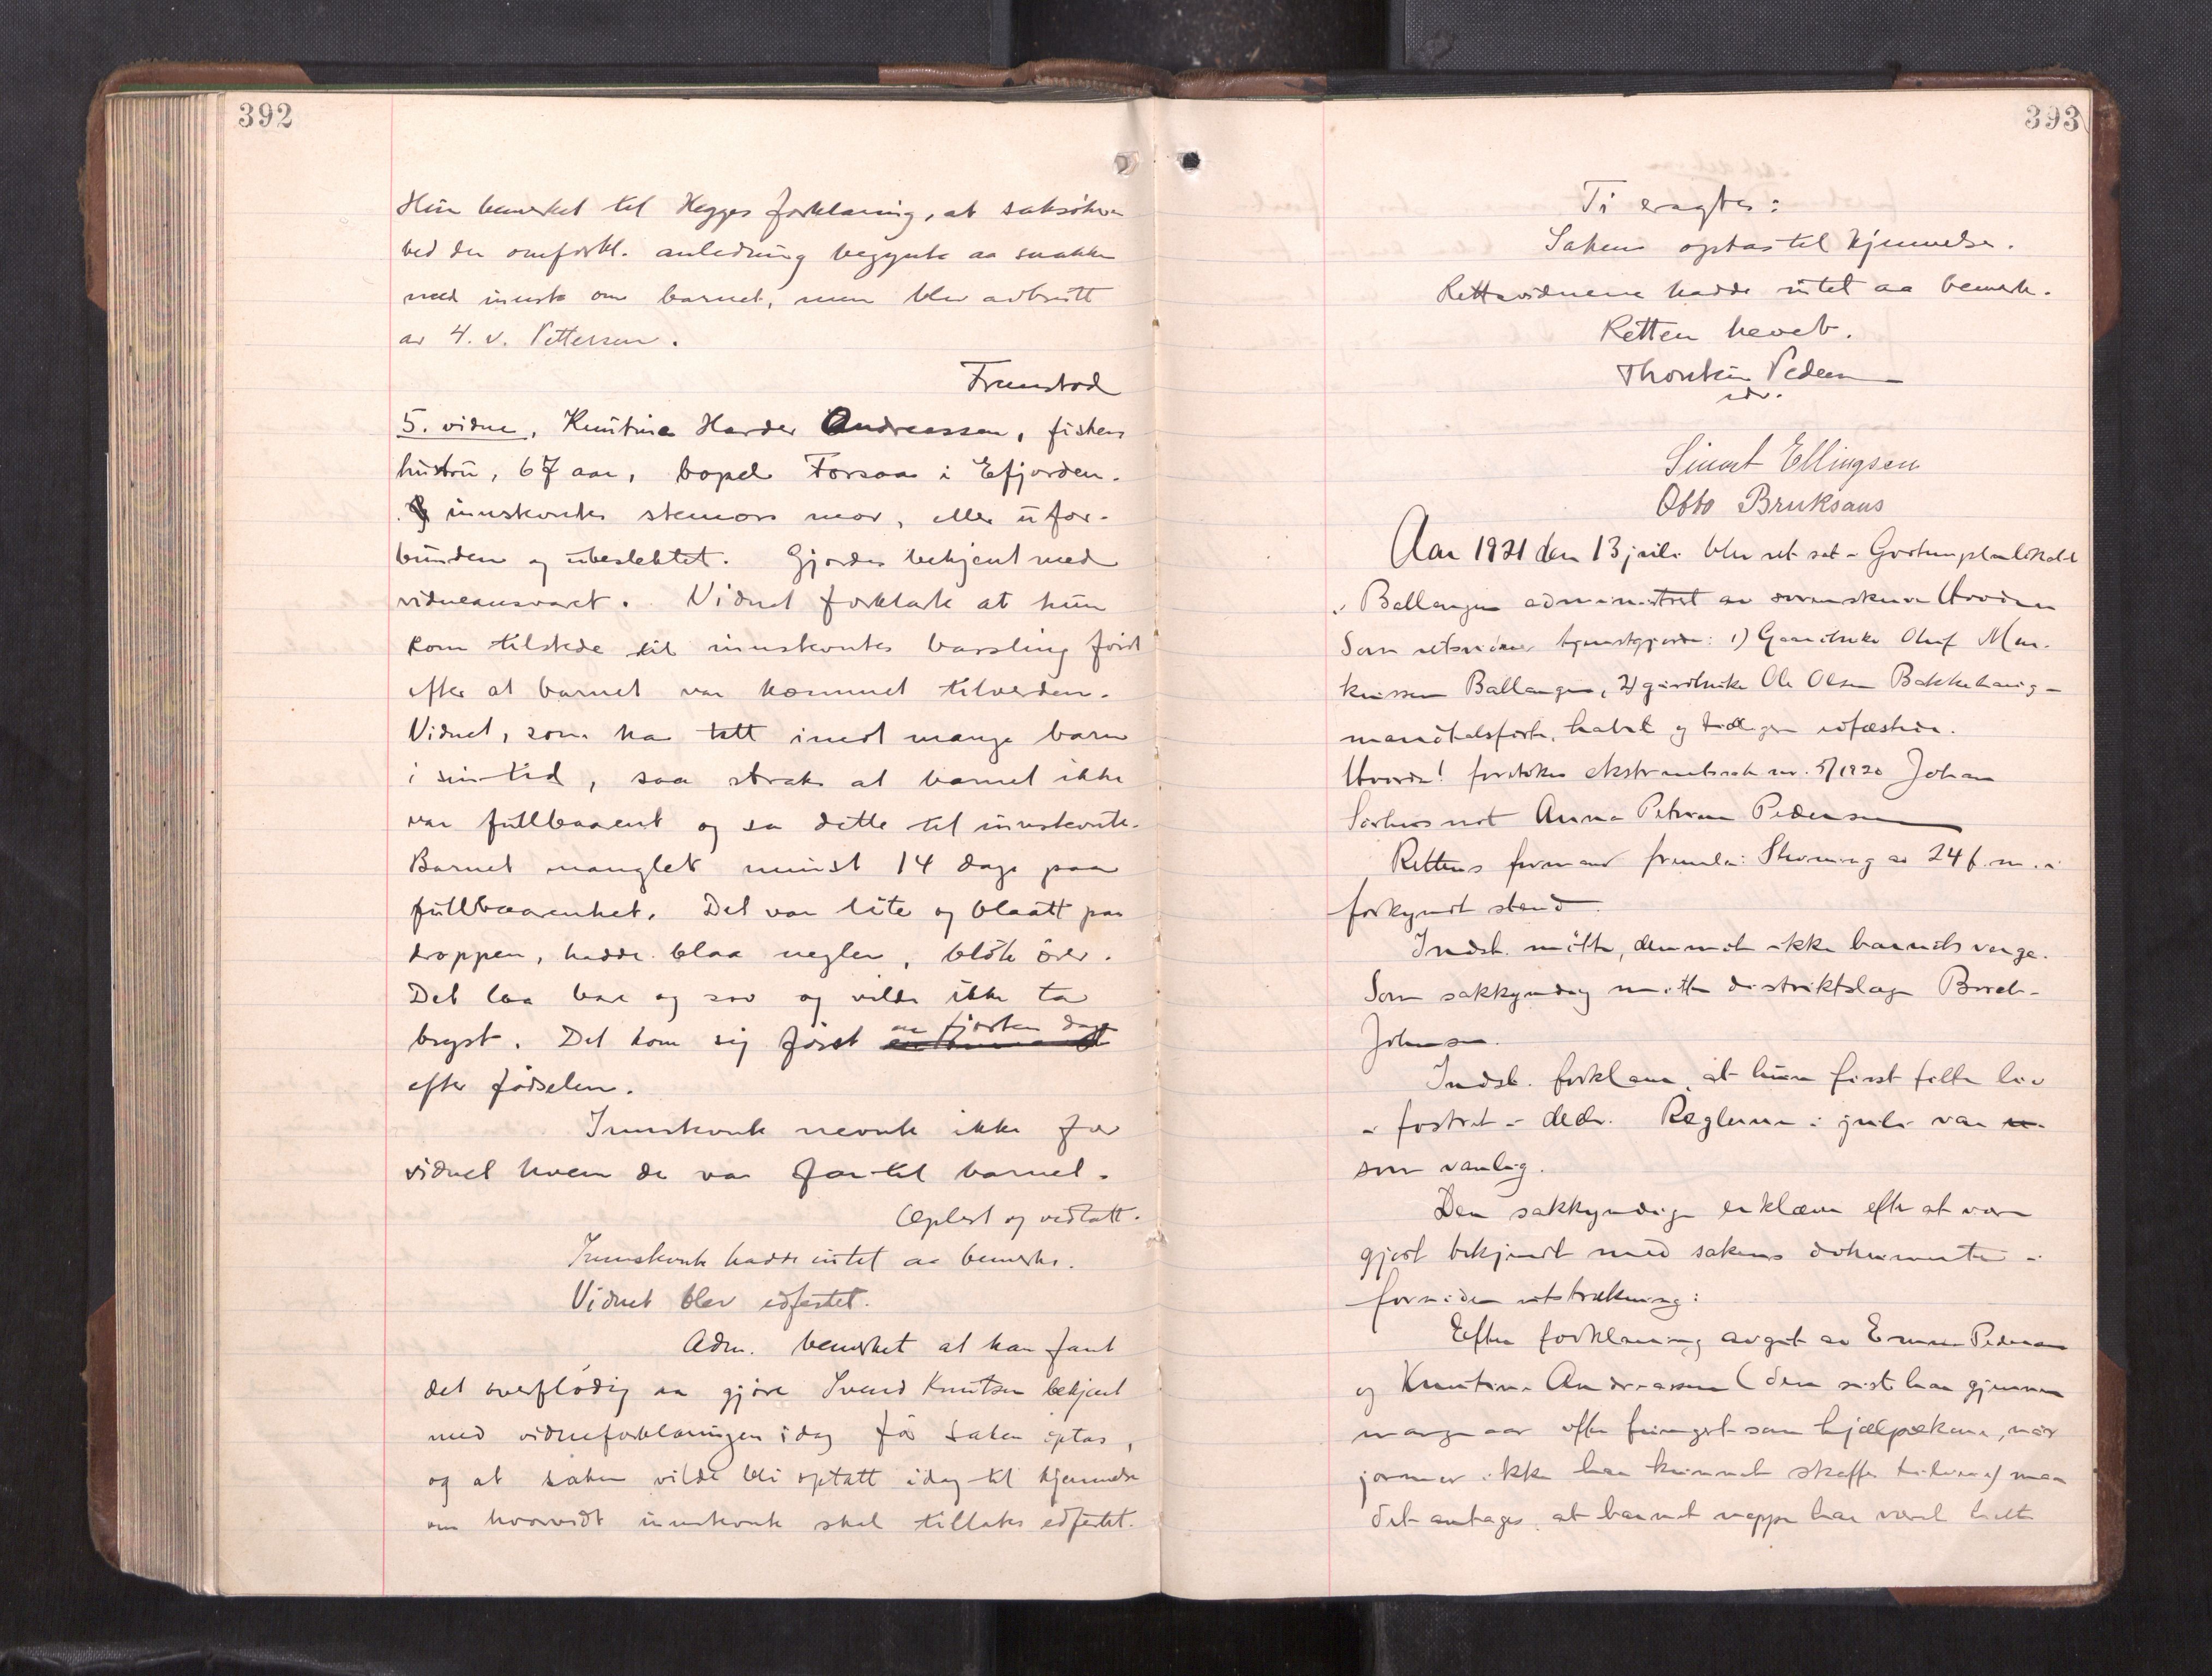 392
Hun bemerket til Hegges forklaring, at saksöker
ved den omforkl. anledning begynte aa snakke
med innst om barnet, men blev avbrutt
av 4. v. Pettersen.
Fremstod
5. vidne, Knutine Harder Andreassen, fiskers
hustru, 67 aar, bopel Forsaa i Efjorden.
innstevntes stemors mor, ellers ufor-
bunden og ubeslektet. Gjordes bekjent med
vidneansvaret. Vidnet forklarte at hun
kom tilstede til innstevntes barsling först
efter at barnet var kommet tilverden.
Vidnet, som har tatt imot mange barn
i sin tid, saa straks at barnet ikke
var fullbaarent og sa dette til innstevnte.
Barnet manglet minst 14 dage paa
fullbaarenhet. Det var lite og blaatt paa
kroppen, hadde blaa negler, blöte örer.
Det laa bare og sov og vilde ikke ta
bryst. Det kom sig först en fjorten dage
efter födselen.
Innstevnte nevnte ikke for
vidnet hvem der var far til barnet.
Oplest og vedtatt.
Innstevnte hadde intet aa bemerke.
Vidnet blev edfestet.
Adm. bemerket at han fant
det overflödig aa gjöre Svend Knutsen bekjent
med vidneforklaringen idag för saken optas,
og at saken vilde bli optatt idag til kjennelse
om hvorvidt innstevnte skal tillates edfestet.
393
Ti eragtes:
Saken optas til kjennelse.
Rettsvidnene hadde intet aa bemerke.
Retten hevet.
Thorstein Pedersen
edv.
Sivert Ellingsen
Otto Bruksaas
Aar 1921 den 13 juli blev ret sat i Godtemplarlokalet
i Ballangen administrert av sorenskriver
Som retsvidner tjenestgjorde: 1) Gaardbruker Oluf Mar-
kussen Ballangen, 2) gaardbruker Ole Olsen Bakkehaug -
mandtalsførte, habile og tidligere edfæstede.
Hvorda! foretokes ekstraretssak nr. 5/1920 Johan
mot Anna Petrine Pedersen
Rettens formand fremla: Stevning av 24 f. m. i
forkyndt stand.
Indst. møtte, derimot ikke barnets verge.
Som sakkyndig møtte distriktslæge Borch-
Johnsen.
Indst. forklarer, at hun først følte liv
i fostret i decbr. Reglerne i juli var
som vanlig.
Den sakkyndige erklærer efter at være
gjort bekjendt med sakens dokumenter i
fornøden utstrækning:
Efter forklaring avgit av Emma Pedersen
og Knutine Andreassen (den sidste har gjennem
mange aar ofte fungert som hjælpekone, naar
jormor ikke har kunnet skaffes tilveie) maa
det antages, at barnet neppe har været helt